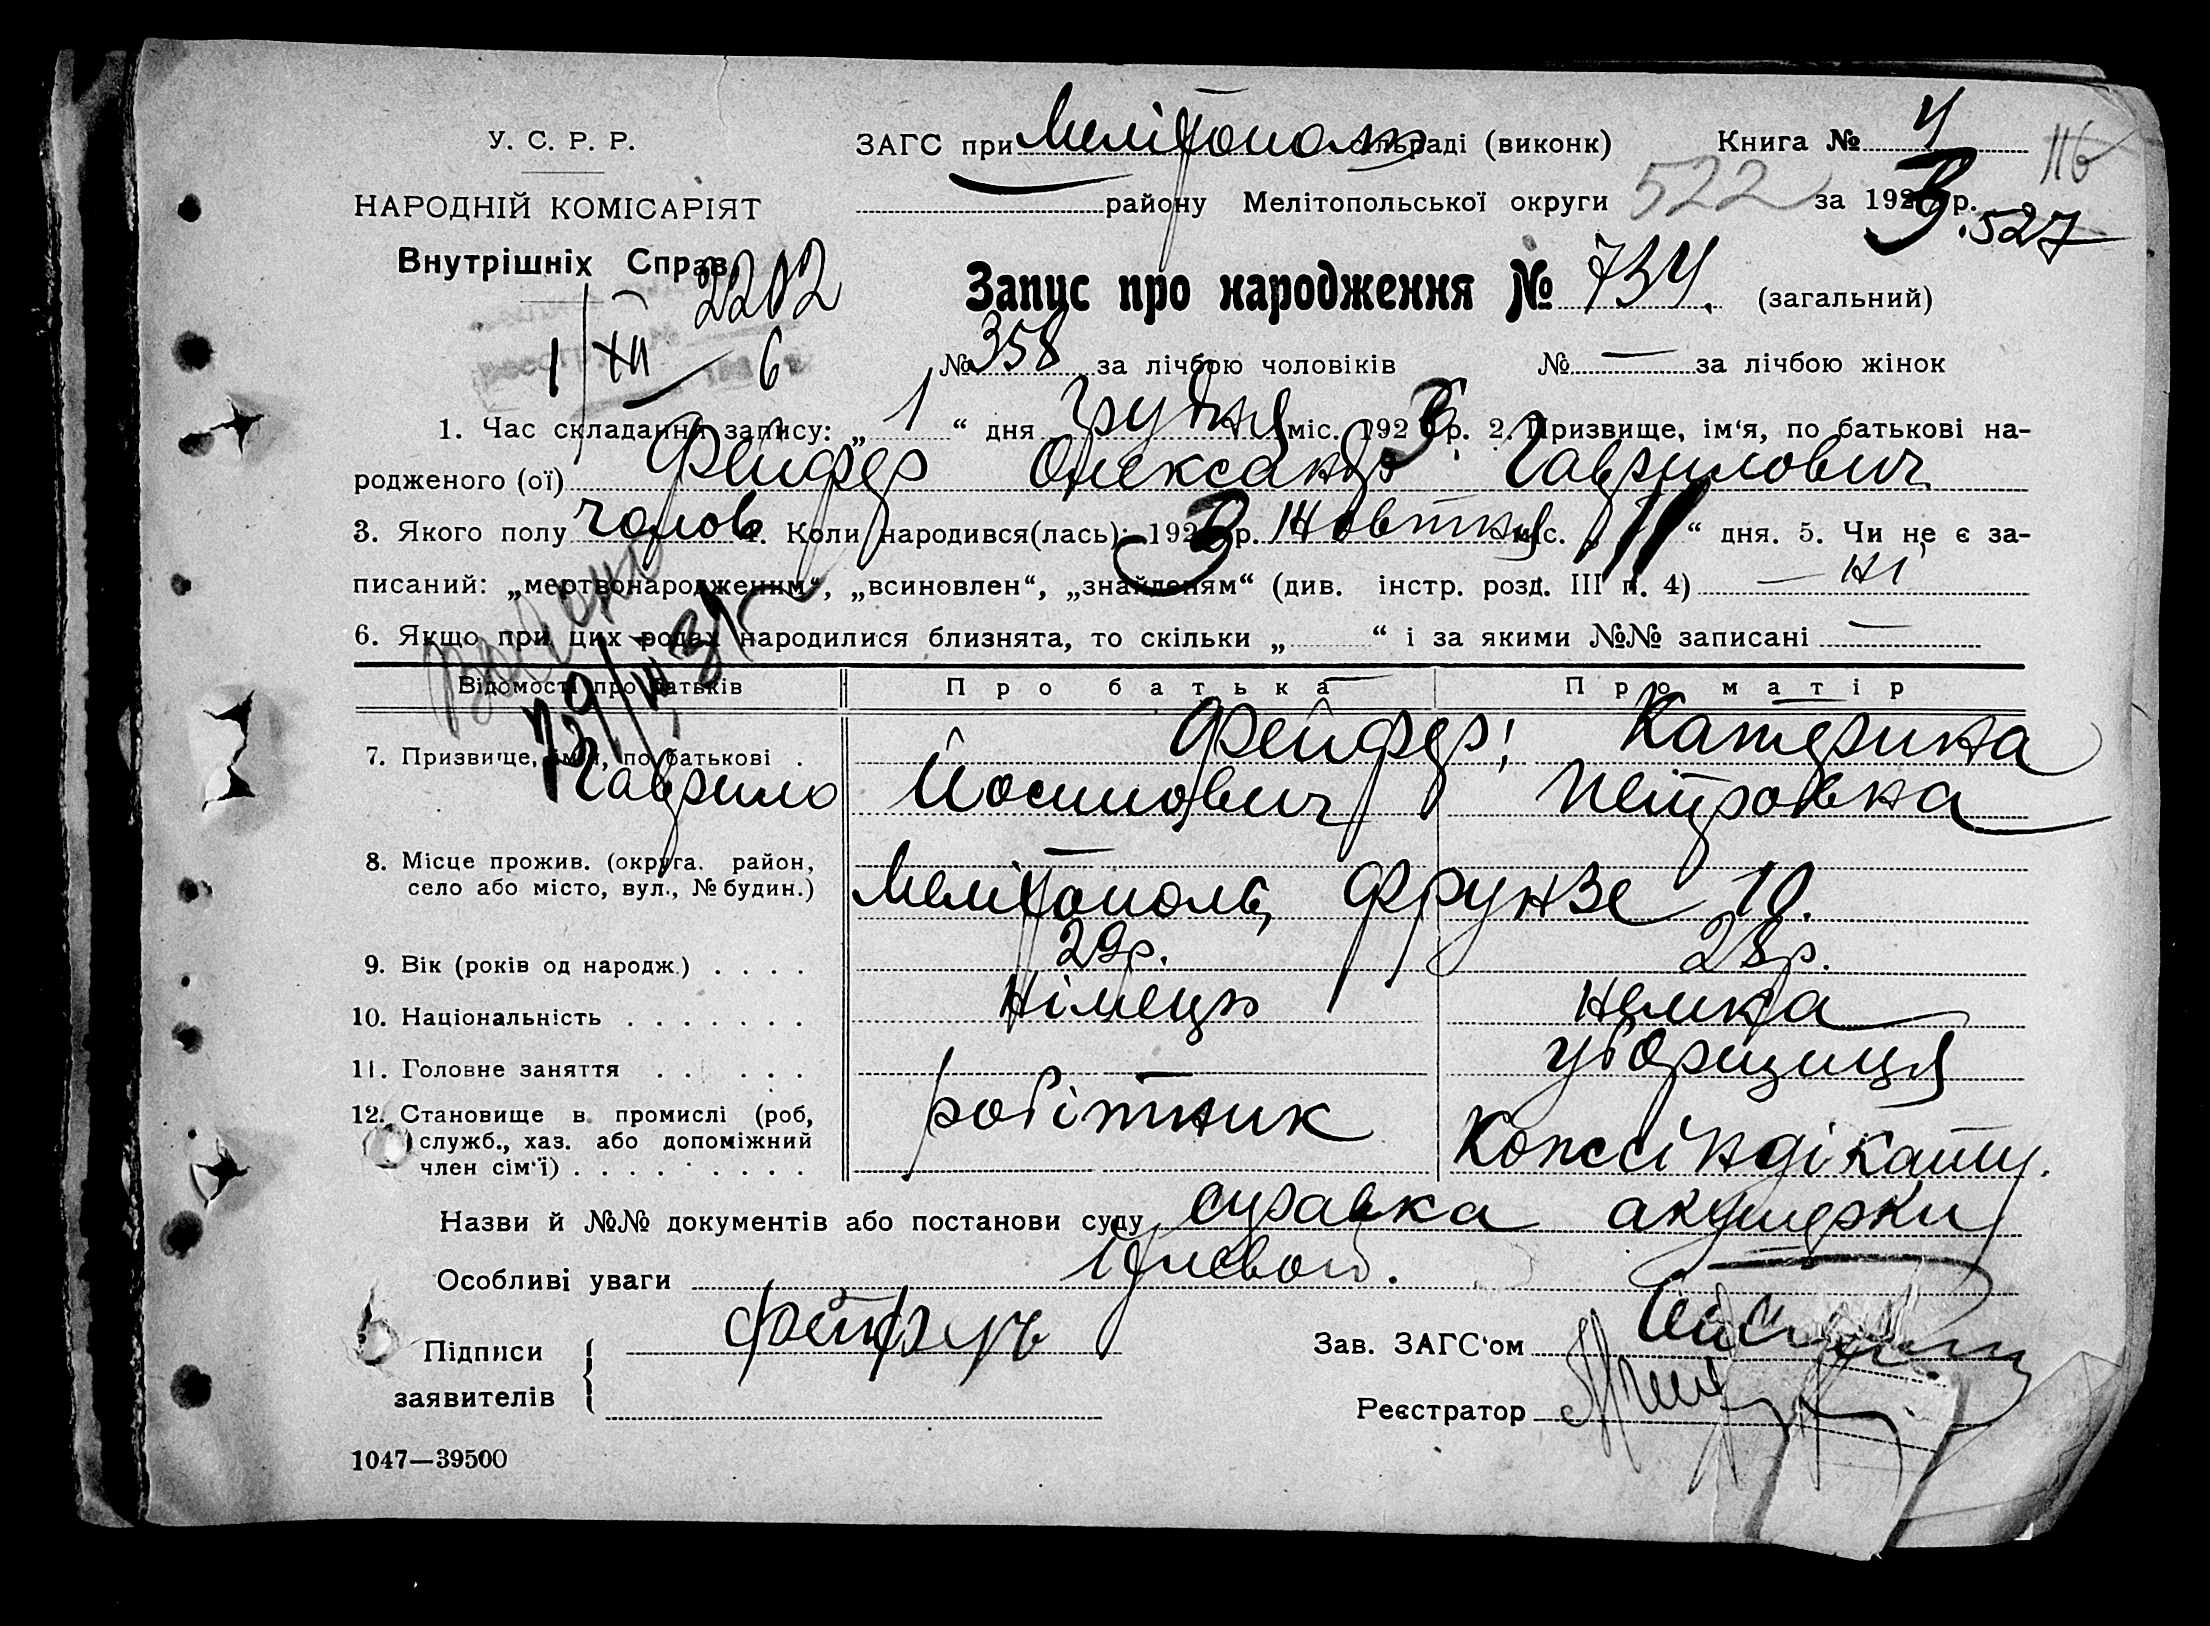 У. С. Р. Р.
НАРОДНІЙ КОМІСАРІЯТ
Внутрішніх Справ
2202
1/XII 6
ЗАГС при Мелітополь сільраді (виконк) Книга № 4
116
району Мелітопольської округи 522 за 192 3 р.
527
Запис про народження № 734. (загальний)
№ 358 за лічбою чоловіків № — за лічбою жінок
1. Час складання запису: „ 1 “ дня Грудня міс. 192 3 р. 2. Призвище, ім‘я, по батькові на-
родженого (ої) Фейфер Олександр Гаврилович
3. Якого полу чолов 4. Коли народився(лась): 192 3 р. Жовтня міс. „ 11 “ дня. 5. Чи не є за-
писаний: „мертвонародженим“, „всиновлен“, „знайденям“ (див. інстр. розд. III п. 4) — ні
6. Якщо при цих родах народилися близнята, то скільки „ “ і за якими №№ записані —
Відомості про батьків Про батька Про матір
7. Призвище, ім‘я, по батькові . Фейфер; Катерина
Гаврило Йосипович Петровна
8. Місце прожив. (округа. район,
село або місто, вул., № будин.) Мелітополь, Фрунзе 10.
9. Вік (років од народж.) . . . . 29р. 28р.
10. Національність . . . . . . . німець немка
11. Головне заняття . . . . . уборщиця
12. Становище в промислі (роб,
служб., хаз. або допоміжний
член сім‘ї) . . . . . . . . . робітник
Назви й №№ документів або постанови суду справка акушерки
Особливі уваги
Підписи
заявителів
Фейферъ
Зав. ЗАГС‘ом
Реєстратор
1047—39500